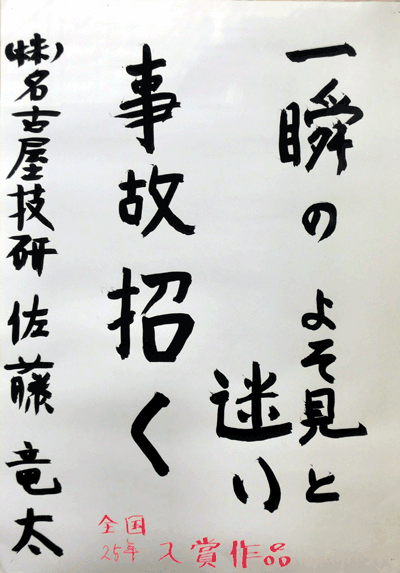 一瞬の よそ見と
迷い
事故招く
(株)名古屋技研 佐藤 竜太
全国
25年 入賞作品